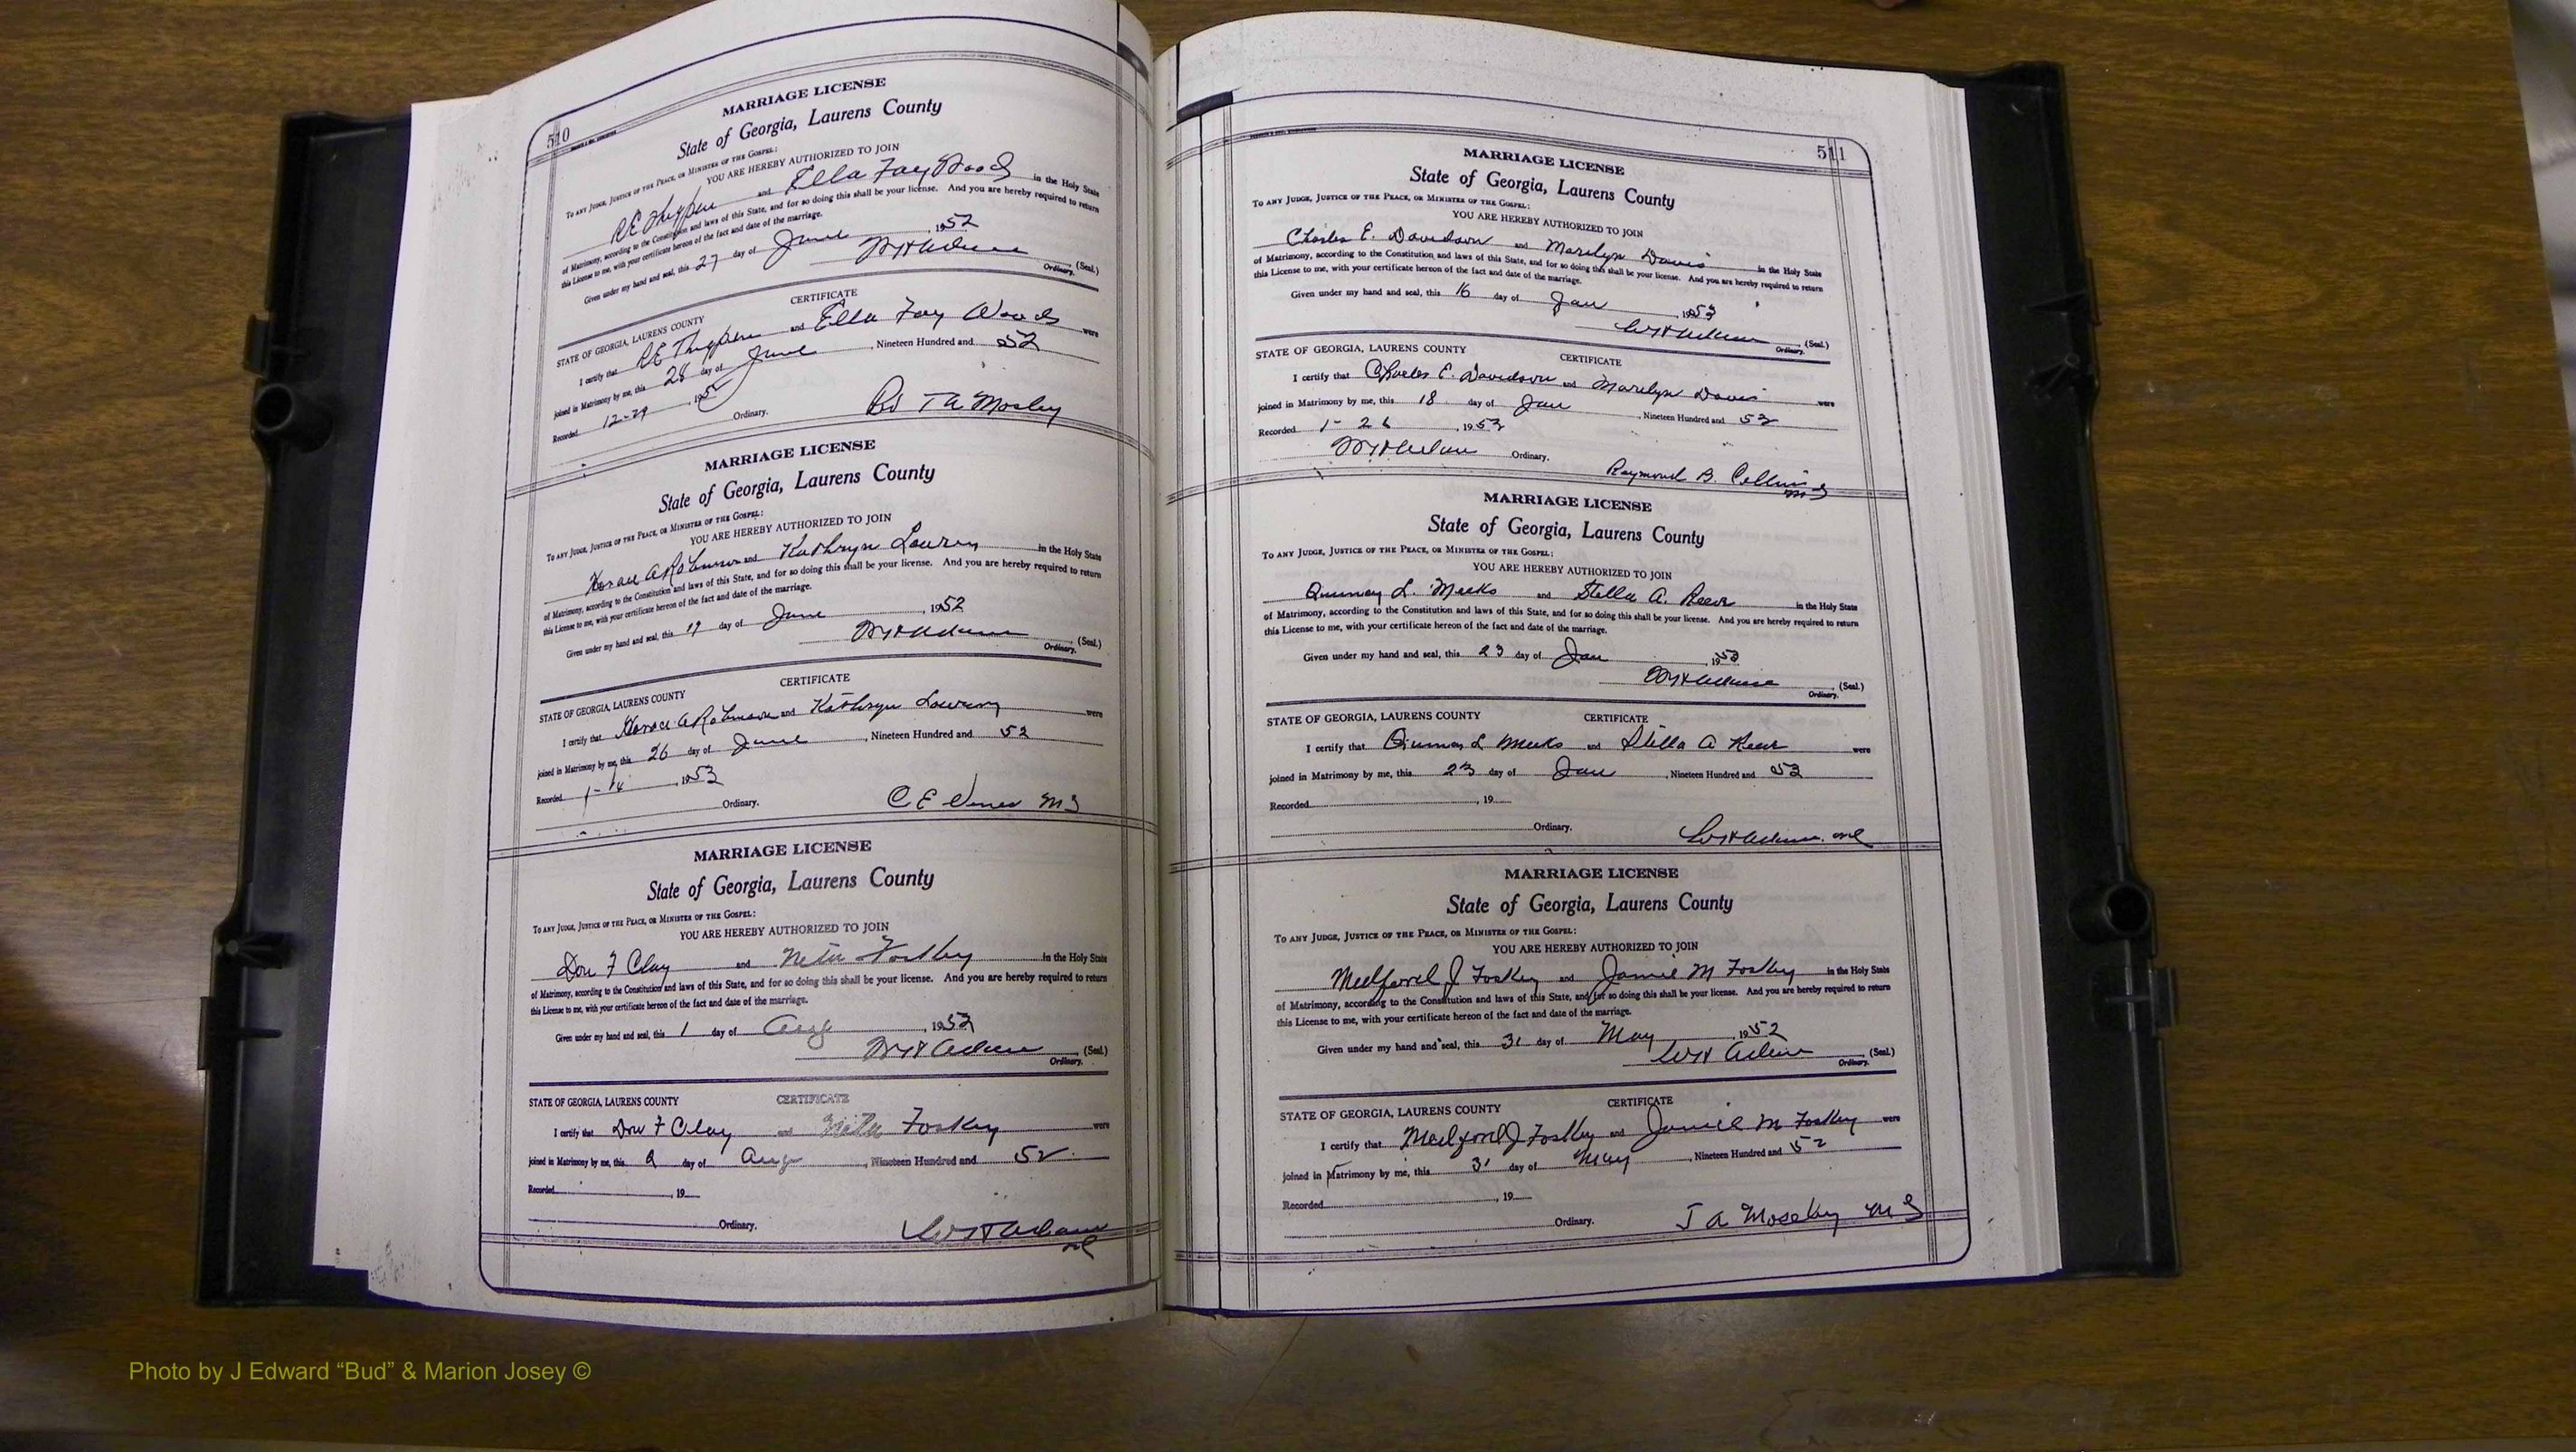 510
MARRIAGE LICENSE
State of Georgia, Laurens County
To any Judge, Justice of the Peace, or Minister of the Gospel:
YOU ARE HEREBY AUTHORIZED TO JOIN
R E Thigpen and Ella Fay Woods in the Holy State
of Matrimony, according to the Constitution and laws of this State, and for so doing this shall be your license. And you are hereby required to return
this License to me, with your certificate hereon of the fact and date of the marriage.
Given under my hand and seal, this 27 day of June, 1952
(Seal.)
Ordinary.
CERTIFICATE
STATE OF GEORGIA, LAURENS COUNTY
I certify that R E Thigpen and Ella Fay Woods were
joined in Matrimony by me, this 28 day of June, Nineteen Hundred and 52
Recorded 12-29, 195
Ordinary.
T A Mosley
MARRIAGE LICENSE
State of Georgia, Laurens County
To any Judge, Justice of the Peace, or Minister of the Gospel:
YOU ARE HEREBY AUTHORIZED TO JOIN
Horace A Robinson and Kathryn Lowery in the Holy State
of Matrimony, according to the Constitution and laws of this State, and for so doing this shall be your license. And you are hereby required to return
this License to me, with your certificate hereon of the fact and date of the marriage.
Given under my hand and seal, this 19 day of June, 1952
(Seal.)
Ordinary.
CERTIFICATE
STATE OF GEORGIA, LAURENS COUNTY
I certify that Horace A Robinson and Kathryn Lowery were
joined in Matrimony by me, this 26 day of June, Nineteen Hundred and 52
Recorded 1-14, 1953
Ordinary.
C E Vines M G
MARRIAGE LICENSE
State of Georgia, Laurens County
To any Judge, Justice of the Peace, or Minister of the Gospel:
YOU ARE HEREBY AUTHORIZED TO JOIN
Don F Clay and Neta Foskey in the Holy State
of Matrimony, according to the Constitution and laws of this State, and for so doing this shall be your license. And you are hereby required to return
this License to me, with your certificate hereon of the fact and date of the marriage.
Given under my hand and seal, this 1 day of Aug, 1952
W H Adams (Seal.)
Ordinary.
STATE OF GEORGIA, LAURENS COUNTY CERTIFICATE
I certify that Don F Clay and Neta Foskey were
joined in Matrimony by me, this 2 day of Aug, Nineteen Hundred and 52
Recorded, 19
Ordinary.
W H Adams
511
MARRIAGE LICENSE
State of Georgia, Laurens County
To any Judge, Justice of the Peace, or Minister of the Gospel:
YOU ARE HEREBY AUTHORIZED TO JOIN
Charles E. Davidson and Marilyn Davis in the Holy State
of Matrimony, according to the Constitution and laws of this State, and for so doing this shall be your license. And you are hereby required to return
this License to me, with your certificate hereon of the fact and date of the marriage.
Given under my hand and seal, this 16 day of Jan, 1953
W H Adams (Seal.)
Ordinary.
STATE OF GEORGIA, LAURENS COUNTY CERTIFICATE
I certify that Charles E. Davidson and Marilyn Davis were
joined in Matrimony by me, this 18 day of Jan, Nineteen Hundred and 53
Recorded 1-26, 1953
W H Adams Ordinary.
Raymond B. Collins
M G
MARRIAGE LICENSE
State of Georgia, Laurens County
To any Judge, Justice of the Peace, or Minister of the Gospel:
YOU ARE HEREBY AUTHORIZED TO JOIN
L. Meeks and Stella A. in the Holy State
of Matrimony, according to the Constitution and laws of this State, and for so doing this shall be your license. And you are hereby required to return
this License to me, with your certificate hereon of the fact and date of the marriage.
Given under my hand and seal, this 23 day of Jan, 1953
W H Adams (Seal.)
Ordinary.
STATE OF GEORGIA, LAURENS COUNTY CERTIFICATE
I certify that L Meeks and Stella A were
joined in Matrimony by me, this 23 day of Jan, Nineteen Hundred and 53
Recorded, 19
Ordinary.
W H Adams
MARRIAGE LICENSE
State of Georgia, Laurens County
To any Judge, Justice of the Peace, or Minister of the Gospel:
YOU ARE HEREBY AUTHORIZED TO JOIN
Medford J Foskey and Jamie M Foskey in the Holy State
of Matrimony, according to the Constitution and laws of this State, and for so doing this shall be your license. And you are hereby required to return
this License to me, with your certificate hereon of the fact and date of the marriage.
Given under my hand and seal, this 31 day of May, 1952
W H Adams (Seal.)
Ordinary.
STATE OF GEORGIA, LAURENS COUNTY CERTIFICATE
I certify that Medford J Foskey and Jamie M Foskey were
joined in Matrimony by me, this 31 day of May, Nineteen Hundred and 52
Recorded, 19
Ordinary.
T A Moseley M G
Photo by J Edward “Bud” & Marion Josey ©